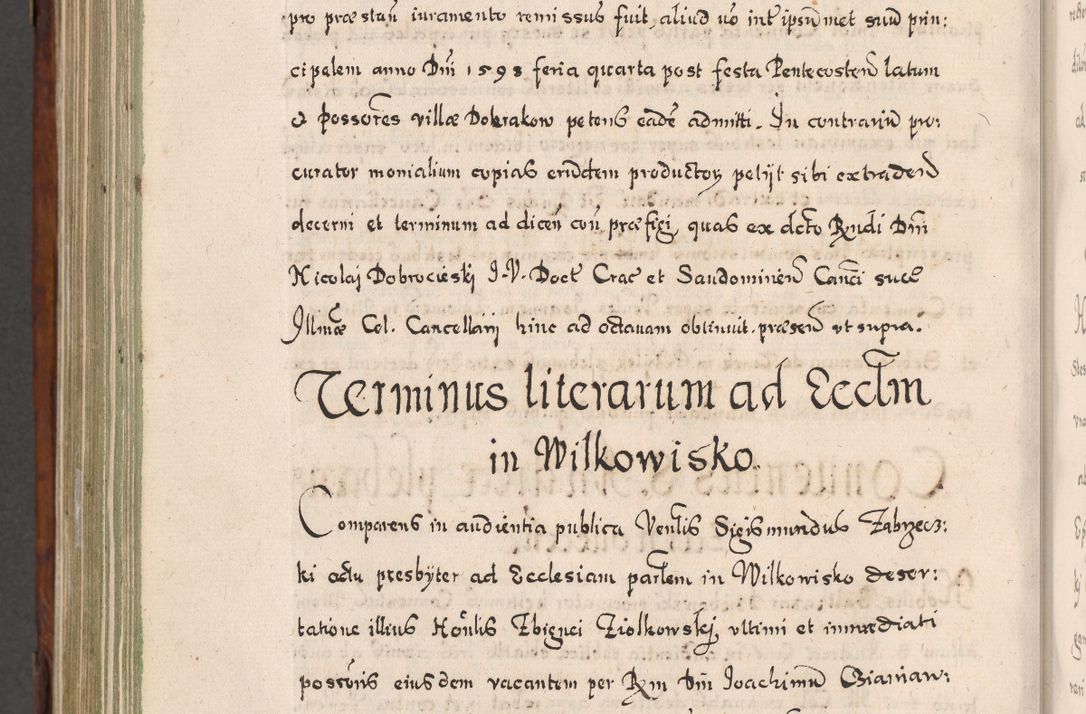 pro præstañ iuramento remissus fuit aliud uo int ipsũ met suũ prin:
cipalem anno Dñi 1598 feria quarta post festa Pentecosteñ latum
& possorẽs villæ Dobrakow petens eadẽ admitti. In contrariũ pro:
curator monialium copias eiusdem productoȝ petijt sibi extradeñ
decerni et terminum ad diceñ coñ præfigi, quas ex dcto Rñdi Dñi
Nicolai Dobrocieski I.V. Doct Crac et Sandomireñ Canci suce
Illmæ Cel. Cancellarij hinc ad octauam obtinuit. præseñ ut supra.
Terminus literarum ad Ecclm
in Wilkowisko.
Comparens in audientia publica Venlis Sigismundus Zabrzecz:
ki actu presbÿter ad Ecclesiam parlem in Wilkowisko deser:
tatione illius Honlis Zbignei Ziolkowskj, ultimi et immediati
possoris eiusdem vacantem per Rm Dñi Joachimũ Czianian: